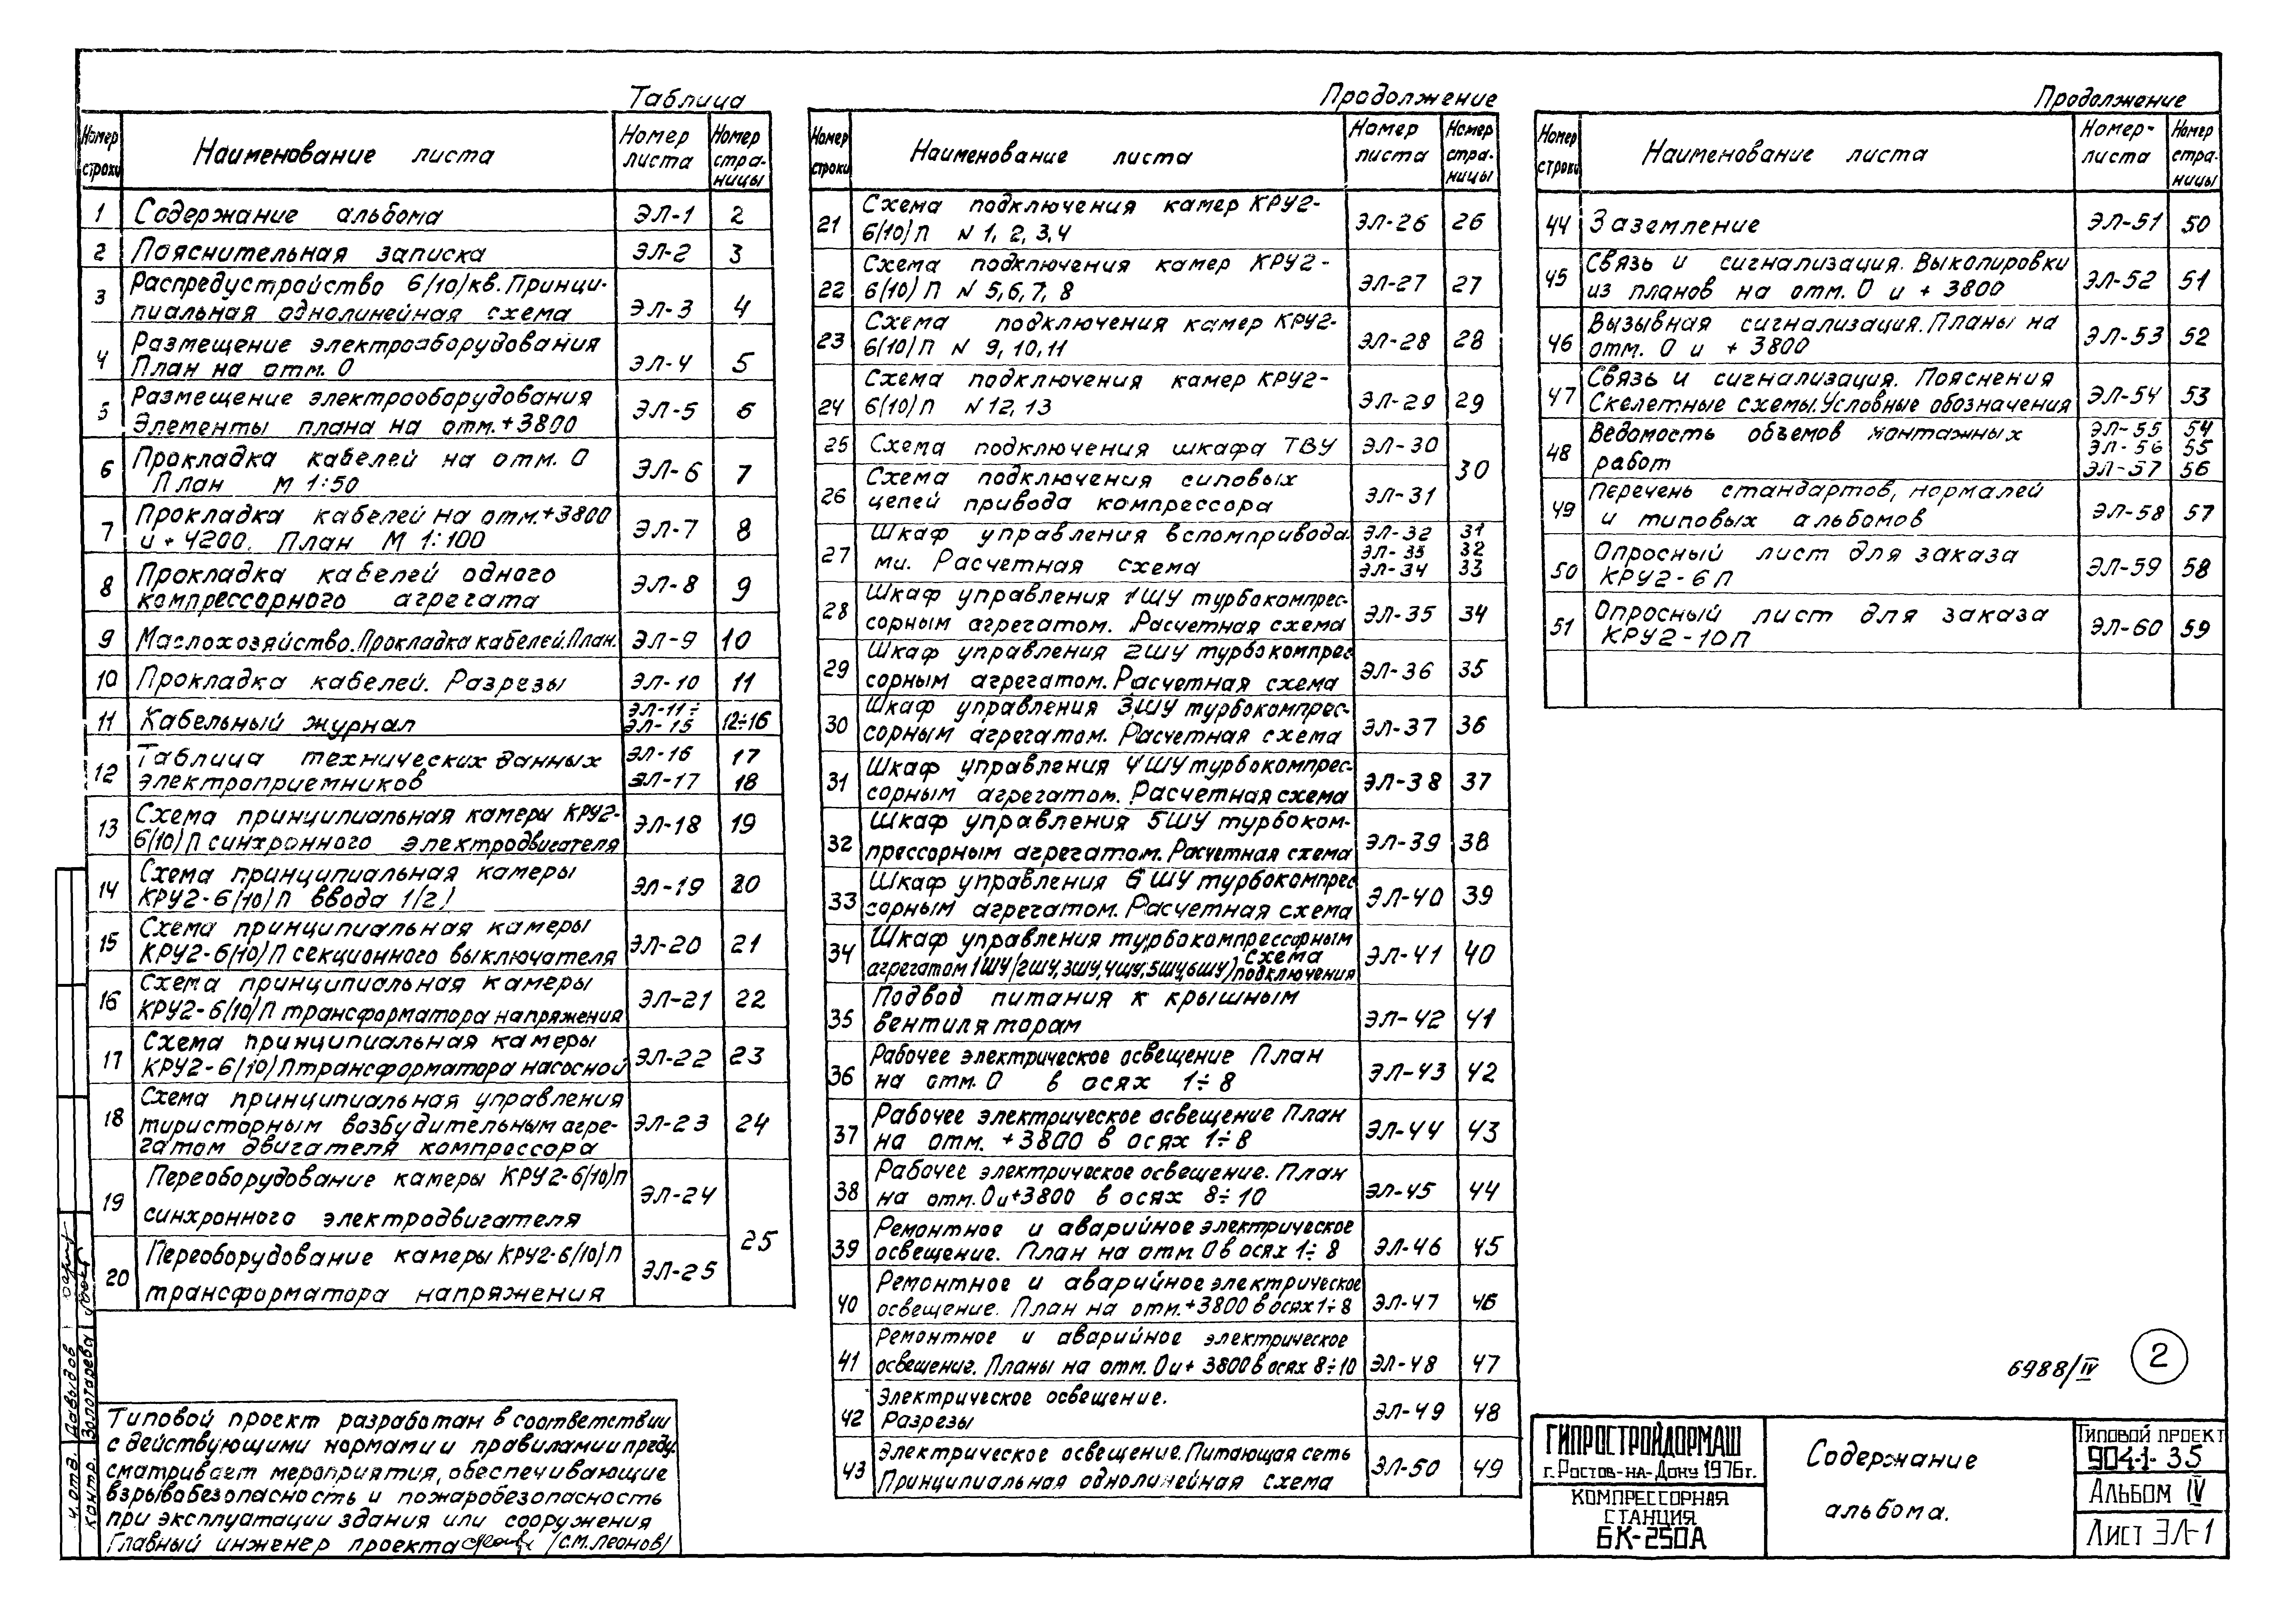 Таблица
Номер строки | Наименование листа | Номер листа | Номер стра-ницы
1 Содержание альбома ЭЛ-1 2
2 Пояснительная записка ЭЛ-2 3
3 Распредустройство 6/10/кв. Принци-
пиальная однолинейная схема ЭЛ-3 4
4 Размещение электрооборудования
План на отм. 0 ЭЛ-4 5
5 Размещение электрооборудования
Элементы плана на отм.+3800 ЭЛ-5 6
6 Прокладка кабелей на отм. 0
План М 1:50 ЭЛ-6 7
7 Прокладка кабелей на отм.+3800
и + 4200. План М 1:100 ЭЛ-7 8
8 Прокладка кабелей одного
компрессорного агрегата ЭЛ-8 9
9 Маслохозяйство. Прокладка кабелей. План. ЭЛ-9 10
10 Прокладка кабелей. Разрезы ЭЛ-10 11
11 Кабельный журнал ЭЛ-11÷ ЭЛ-15 12÷16
12 Таблица технических данных ЭЛ-16 17
электроприемников ЭЛ-17 18
13 Схема принципиальная камеры КРУ2-
6/10/П синхронного электродвигателя ЭЛ-18 19
14 Схема принципиальная камеры
КРУ2-6/10/П ввода 1/2/ ЭЛ-19 20
15 Схема принципиальная камеры
КРУ2-6/10/П секционного выключателя ЭЛ-20 21
16 Схема принципиальная камеры
КРУ2-6/10/П трансформатора напряжения ЭЛ-21 22
17 Схема принципиальная камеры
КРУ2-6/10/П трансформатора насосной ЭЛ-22 23
18 Схема принципиальная управления
тиристорным возбудительным агре-
гатом двигателя компрессора ЭЛ-23 24
19 Переоборудование камеры КРУ2-6/10/П
синхронного электродвигателя ЭЛ-24
25
20 Переоборудование камеры КРУ2-6/10/П
трансформатора напряжения ЭЛ-25
Продолжение
Номер строки | Наименование листа | Номер листа | Номер стра-ницы
21 Схема подключения камер КРУ2-
6/10/П N 1, 2, 3, 4 ЭЛ-26 26
22 Схема подключения камер КРУ2-
6/10/П N 5, 6, 7, 8 ЭЛ-27 27
23 Схема подключения камер КРУ2-
6/10/П N 9, 10, 11 ЭЛ-28 28
24 Схема подключения камер КРУ2-
6/10/П N 12, 13 ЭЛ-29 29
25 Схема подключения шкафа ТВУ ЭЛ-30
30
26 Схема подключения силовых
цепей привода компрессора ЭЛ-31
27 Шкаф управления вспомпривода- ЭЛ-32 31
ЭЛ-33 32
ми. Расчетная схема ЭЛ-34 33
28 Шкаф управления 1ШУ турбокомпрес-
сорным агрегатом. Расчетная схема ЭЛ-35 34
29 Шкаф управления 2ШУ турбокомпрес
сорным агрегатом. Расчетная схема ЭЛ-36 35
30 Шкаф управления 3ШУ турбокомпрес-
сорным агрегатом. Расчетная схема ЭЛ-37 36
31 Шкаф управления 4ШУ турбокомпрес-
сорным агрегатом. Расчетная схема ЭЛ-38 37
32 Шкаф управления 5ШУ турбоком-
прессорным агрегатом. Расчетная схема ЭЛ-39 38
33 Шкаф управления 6ШУ турбокомпрес
сорным агрегатом. Расчетная схема ЭЛ-40 39
34 Шкаф управления турбокомпрессорным
агрегатом 1ШУ/2ШУ,3ШУ,4ШУ,5ШУ,6ШУ/ схема подключения ЭЛ-41 40
35 Подвод питания к крышным
вентиляторам ЭЛ-42 41
36 Рабочее электрическое освещение План
на отм. 0 в осях 1÷8 ЭЛ-43 42
37 Рабочее электрическое освещение План
на отм. +3800 в осях 1÷8 ЭЛ-44 43
38 Рабочее электрическое освещение. План
на отм. 0 и +3800 в осях 8÷10 ЭЛ-45 44
39 Ремонтное и аварийное электрическое
освещение. План на отм 0 в осях 1÷8 ЭЛ-46 45
40 Ремонтное и аварийное электрическое
освещение. План на отм.+3800 в осях 1÷8 ЭЛ-47 46
41 Ремонтное и аварийное электрическое
освещение. Планы на отм. 0 и + 3800 в осях 8÷10 ЭЛ-48 47
42 Электрическое освещение.
Разрезы ЭЛ-49 48
43 Электрическое освещение. Питающая сеть
Принципиальная однолинейная схема ЭЛ-50 49
Продолжение
Номер строки | Наименование листа | Номер-листа | Номер стра-ницы
44 Заземление ЭЛ-51 50
45 Связь и сигнализация. Выкопировки
из планов на отм. 0 и + 3800 ЭЛ-52 51
46 Вызывная сигнализация. Планы на
отм. 0 и + 3800 ЭЛ-53 52
47 Связь и сигнализация. Пояснения
Скелетные схемы. Условные обозначения ЭЛ-54 53
48 Ведомость объемов монтажных ЭЛ-55 54
ЭЛ-56 55
работ ЭЛ-57 56
49 Перечень стандартов, нормалей
и типовых альбомов ЭЛ-58 57
50 Опросный лист для заказа
КРУ2-6П ЭЛ-59 58
51 Опросный лист для заказа
КРУ2-10П ЭЛ-60 59
6988/IV
2
Типовой проект разработан в соответствии
с действующими нормами и правилами и преду-
сматривает мероприятия, обеспечивающие
взрывобезопасность и пожаробезопасность
при эксплуатации здания или сооружения
Главный инженер проекта /С.М. Леонов/
Н. отд. Давыдов
Контр. Золотарева
ГИПРОСТРОЙДОРМАШ
г. Ростов-на-Дону 1976г.
КОМПРЕССОРНАЯ
СТАНЦИЯ
БК-250А
Содержание
альбома.
Типовой проект
904-1-35
Альбом IV
Лист ЭЛ-1